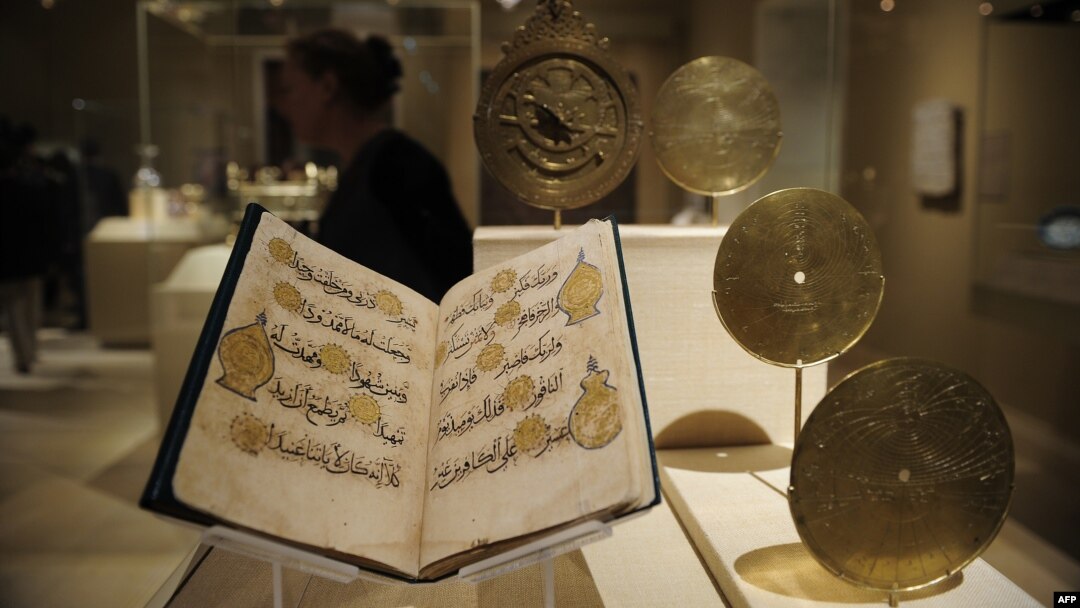 وربك فكبر وثيابك فطهر
والرجز فاهجر ولا تمنن تستكثر
ولربك فاصبر فإذا نقر في
الناقور فذلك يومئذ يوم
عسير على الكافرين غير
يسير ذرني ومن خلقت وحيدا
وجعلت له مالا ممدودا
وبنين شهودا ومهدت له
تمهيدا ثم يطمع أن أزيد
كلا إنه كان لآياتنا عنيدا
AFP